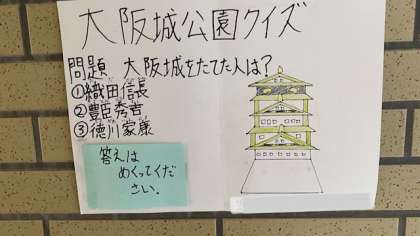 大阪城公園クイズ
問題 大阪城をたてた人は?
①織田信長
②豊臣秀吉
③徳川家康
答えは
めくってくだ
さい.